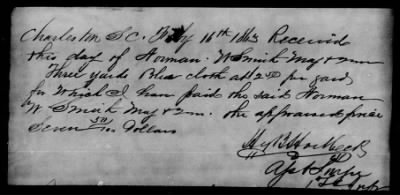 Charleston S.C. Feby 16th 1863 Received
this day of Norman. W Smith Maj & 2m
Three yards Blue cloth at 2 50 per yard
for Which I have paid the said Norman
W Smith Maj & 2m. the appraised price
Seven 50/100 Dollars